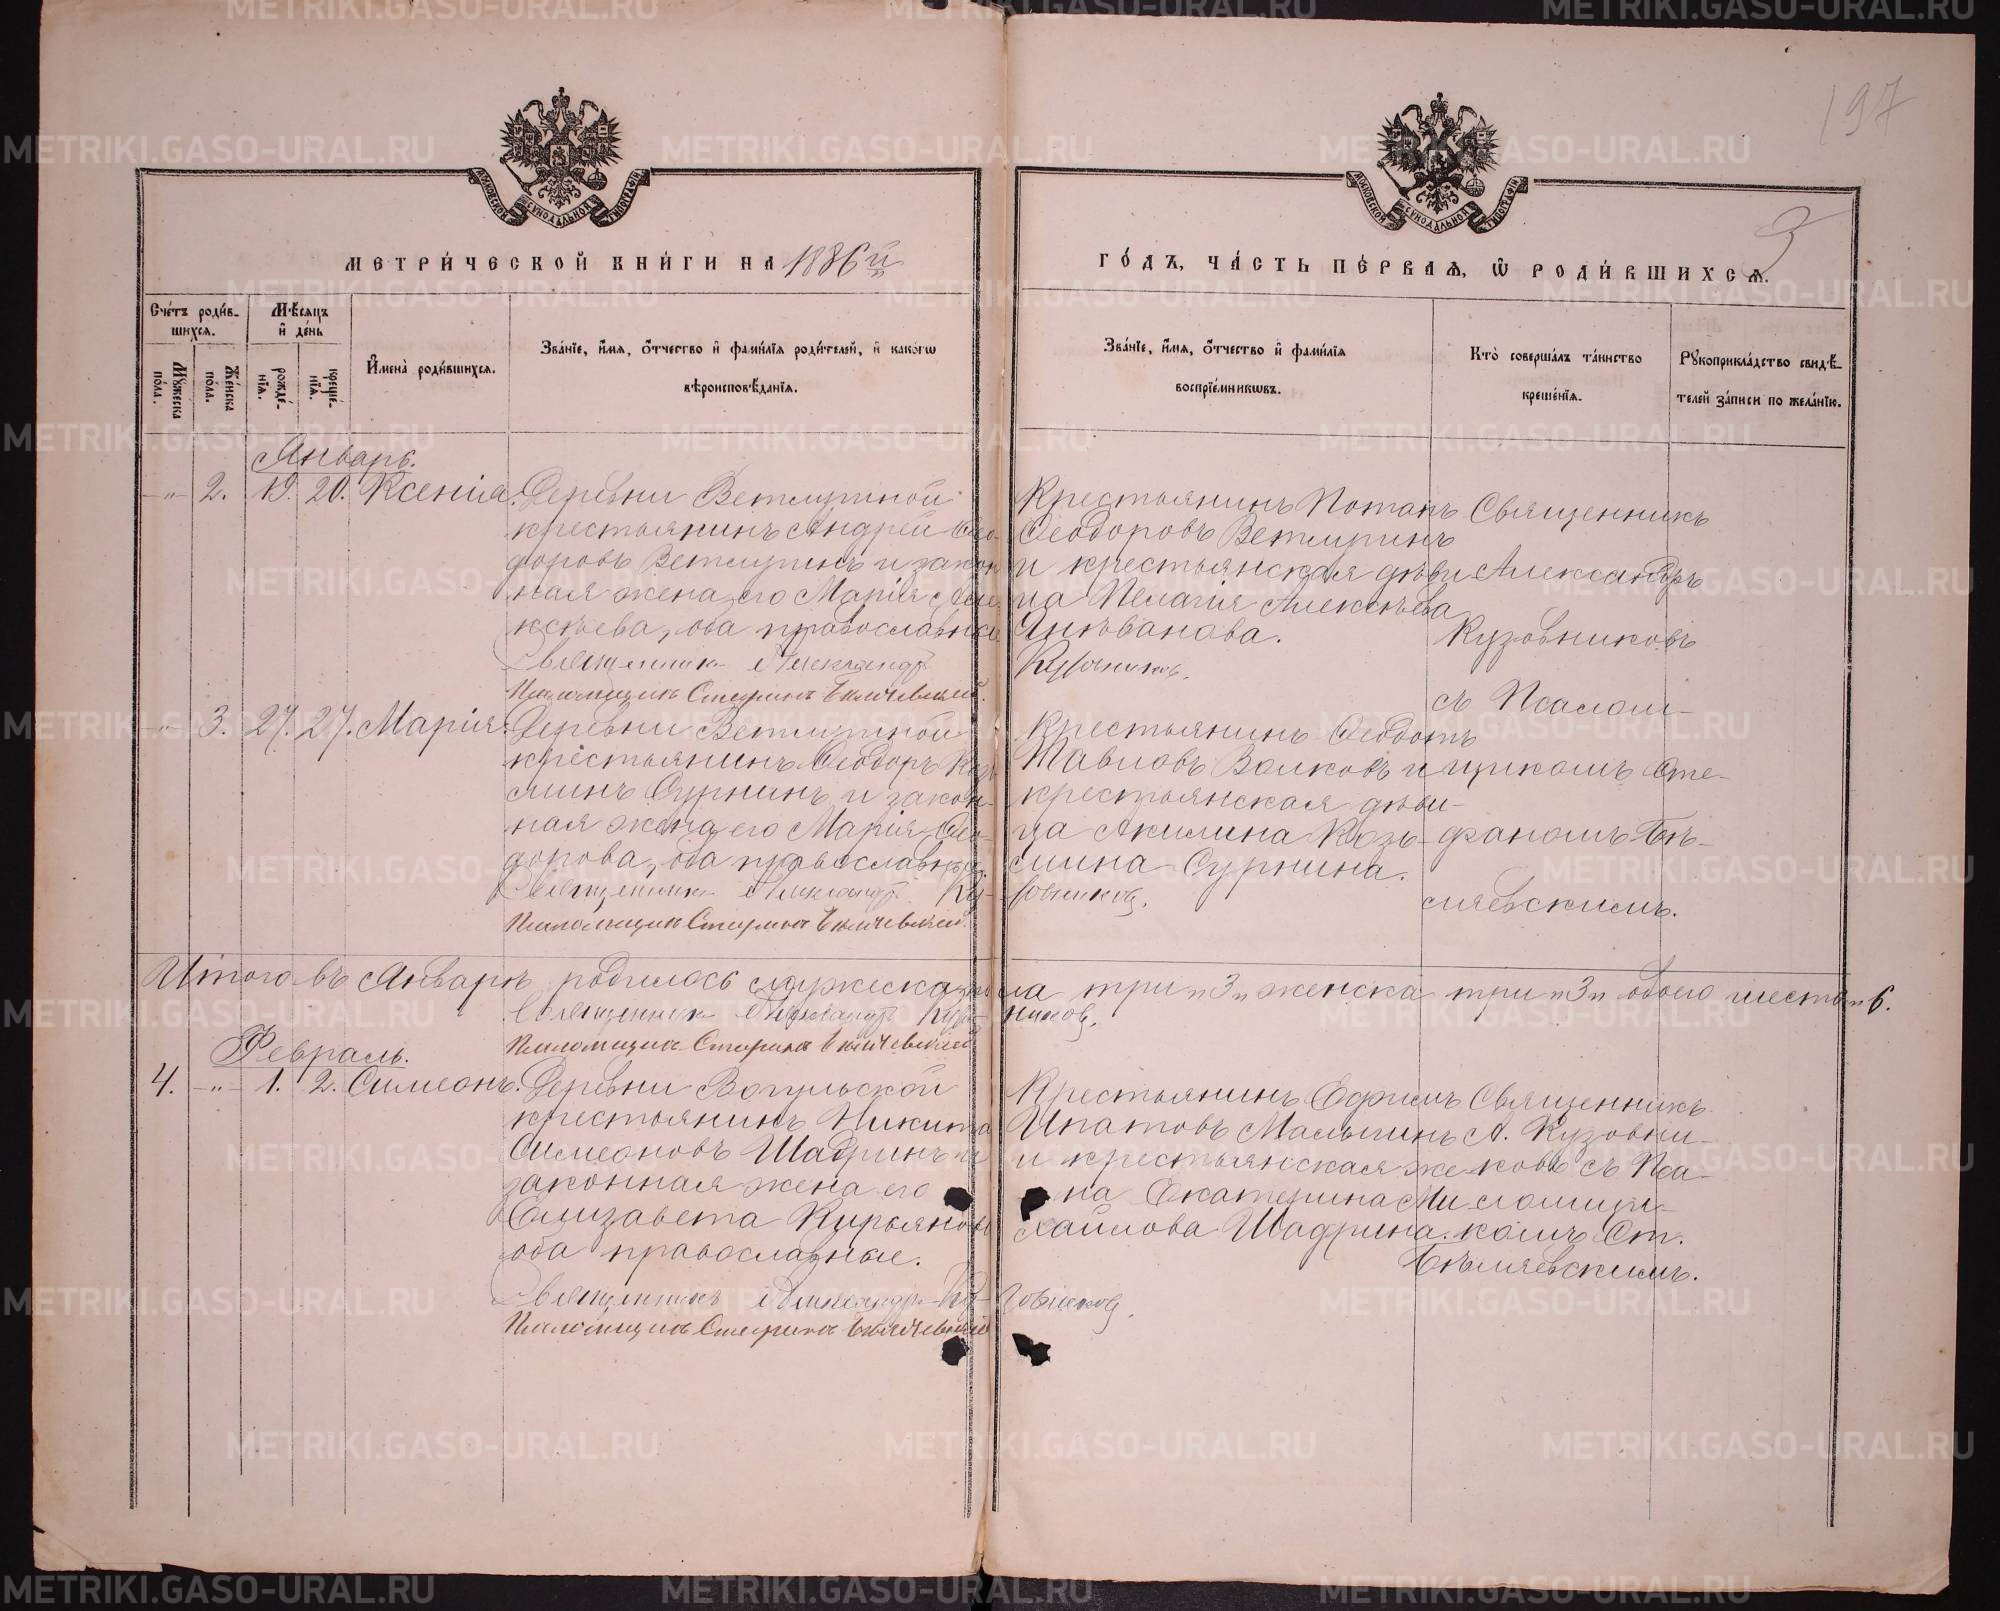 197
3
МОСКОВСКОЙ СѴНОДАЛЬНОЙ ТИПОГРАФІИ
МОСКОВСКОЙ СѴНОДАЛЬНОЙ ТИПОГРАФІИ
МЕТРИ́ЧЕСКОЙ КНИ́ГИ НА 1886й
ГО́ДЪ, ЧА́СТЬ ПЕ́РВАѦ, Ѡ РОДИ́ВШИХСѦ.
Сче́тъ роди́в-
шихсѧ.
Мѣ́сѧцъ
и де́нь
Мꙋ́жеска
по́ла.
Же́нска
по́ла.
рожде́-
нїѧ.
креще́-
нїѧ.
Имена̀ роди́вшихсѧ.
Зва́нїе, и́мѧ, ѻ҆́тчество и фами́лїѧ роди́телей, и како́гѡ
вѣроисповѣ́данїѧ.
Зва́нїе, и́мѧ, ѻ҆́тчество и фами́лїѧ
воспрїе́мникѡвъ.
Кто̀ соверша́лъ та́инство
креще́нїѧ.
Рꙋкоприкла́дство свидѣ́-
телей за́писи по жела́нїю.
Январь.
-„- 2. 19. 20. Ксенія. Деревни Ветлугиной
крестьянинъ Андрей Ѳео-
доровъ Ветлугинъ и закон
ная жена его Марія Але
ксѣева, оба православные
Священникъ Александръ
Псаломщикъ Стефанъ Бѣляевскій.
Крестьянинъ Потапъ
Ѳеодоровъ Ветлугинъ
и крестьянская дѣви
ца Пелагія Алексѣева
Кузовниковъ.
Священникъ
Александръ
Кузовниковъ
съ Псалом-
щикомъ Сте-
фаномъ Бѣ-
ляевскимъ.
-„- 3. 27. 27. Марія. Деревни Ветлугиной
крестьянинъ Ѳеодоръ Козь
минъ Сурнинъ и закон-
ная жена его Марія Ѳео-
дорова, оба православные.
Священникъ Александръ Ку-
Псаломщикъ Стефанъ Бѣляевскій.
Крестьянинъ Ѳеодотъ
Павловъ Волковъ и
крестьянская дѣви-
ца Акилина Козь-
мина Сурнина.
зовниковъ.
Итого въ Январѣ родилось мужеска по ла три „3„ женска три „3„ обоего шесть „6.
Священникъ Александръ Кузов никовъ.
Псаломщикъ Стефанъ Бѣляевскій
Февраль.
4. -„- 1. 2. Симеонъ. Деревни Вогульской
крестьянинъ Никита
Симеоновъ Шадринъ и
законная жена его
Елизавета Кирьянова
оба православные.
Священникъ Александръ Ку-
Псаломщикъ Стефанъ Бѣляевскій
Крестьянинъ Ефимъ
Ипатовъ Малыгинъ
и крестьянская же
на Екатерина Ми
хайлова Шадрина.
зовниковъ.
Священникъ
А. Кузовни-
ковъ съ Пса
ломщи-
комъ Ст.
Бѣляевскимъ.
METRIKI.GASO-URAL.RU